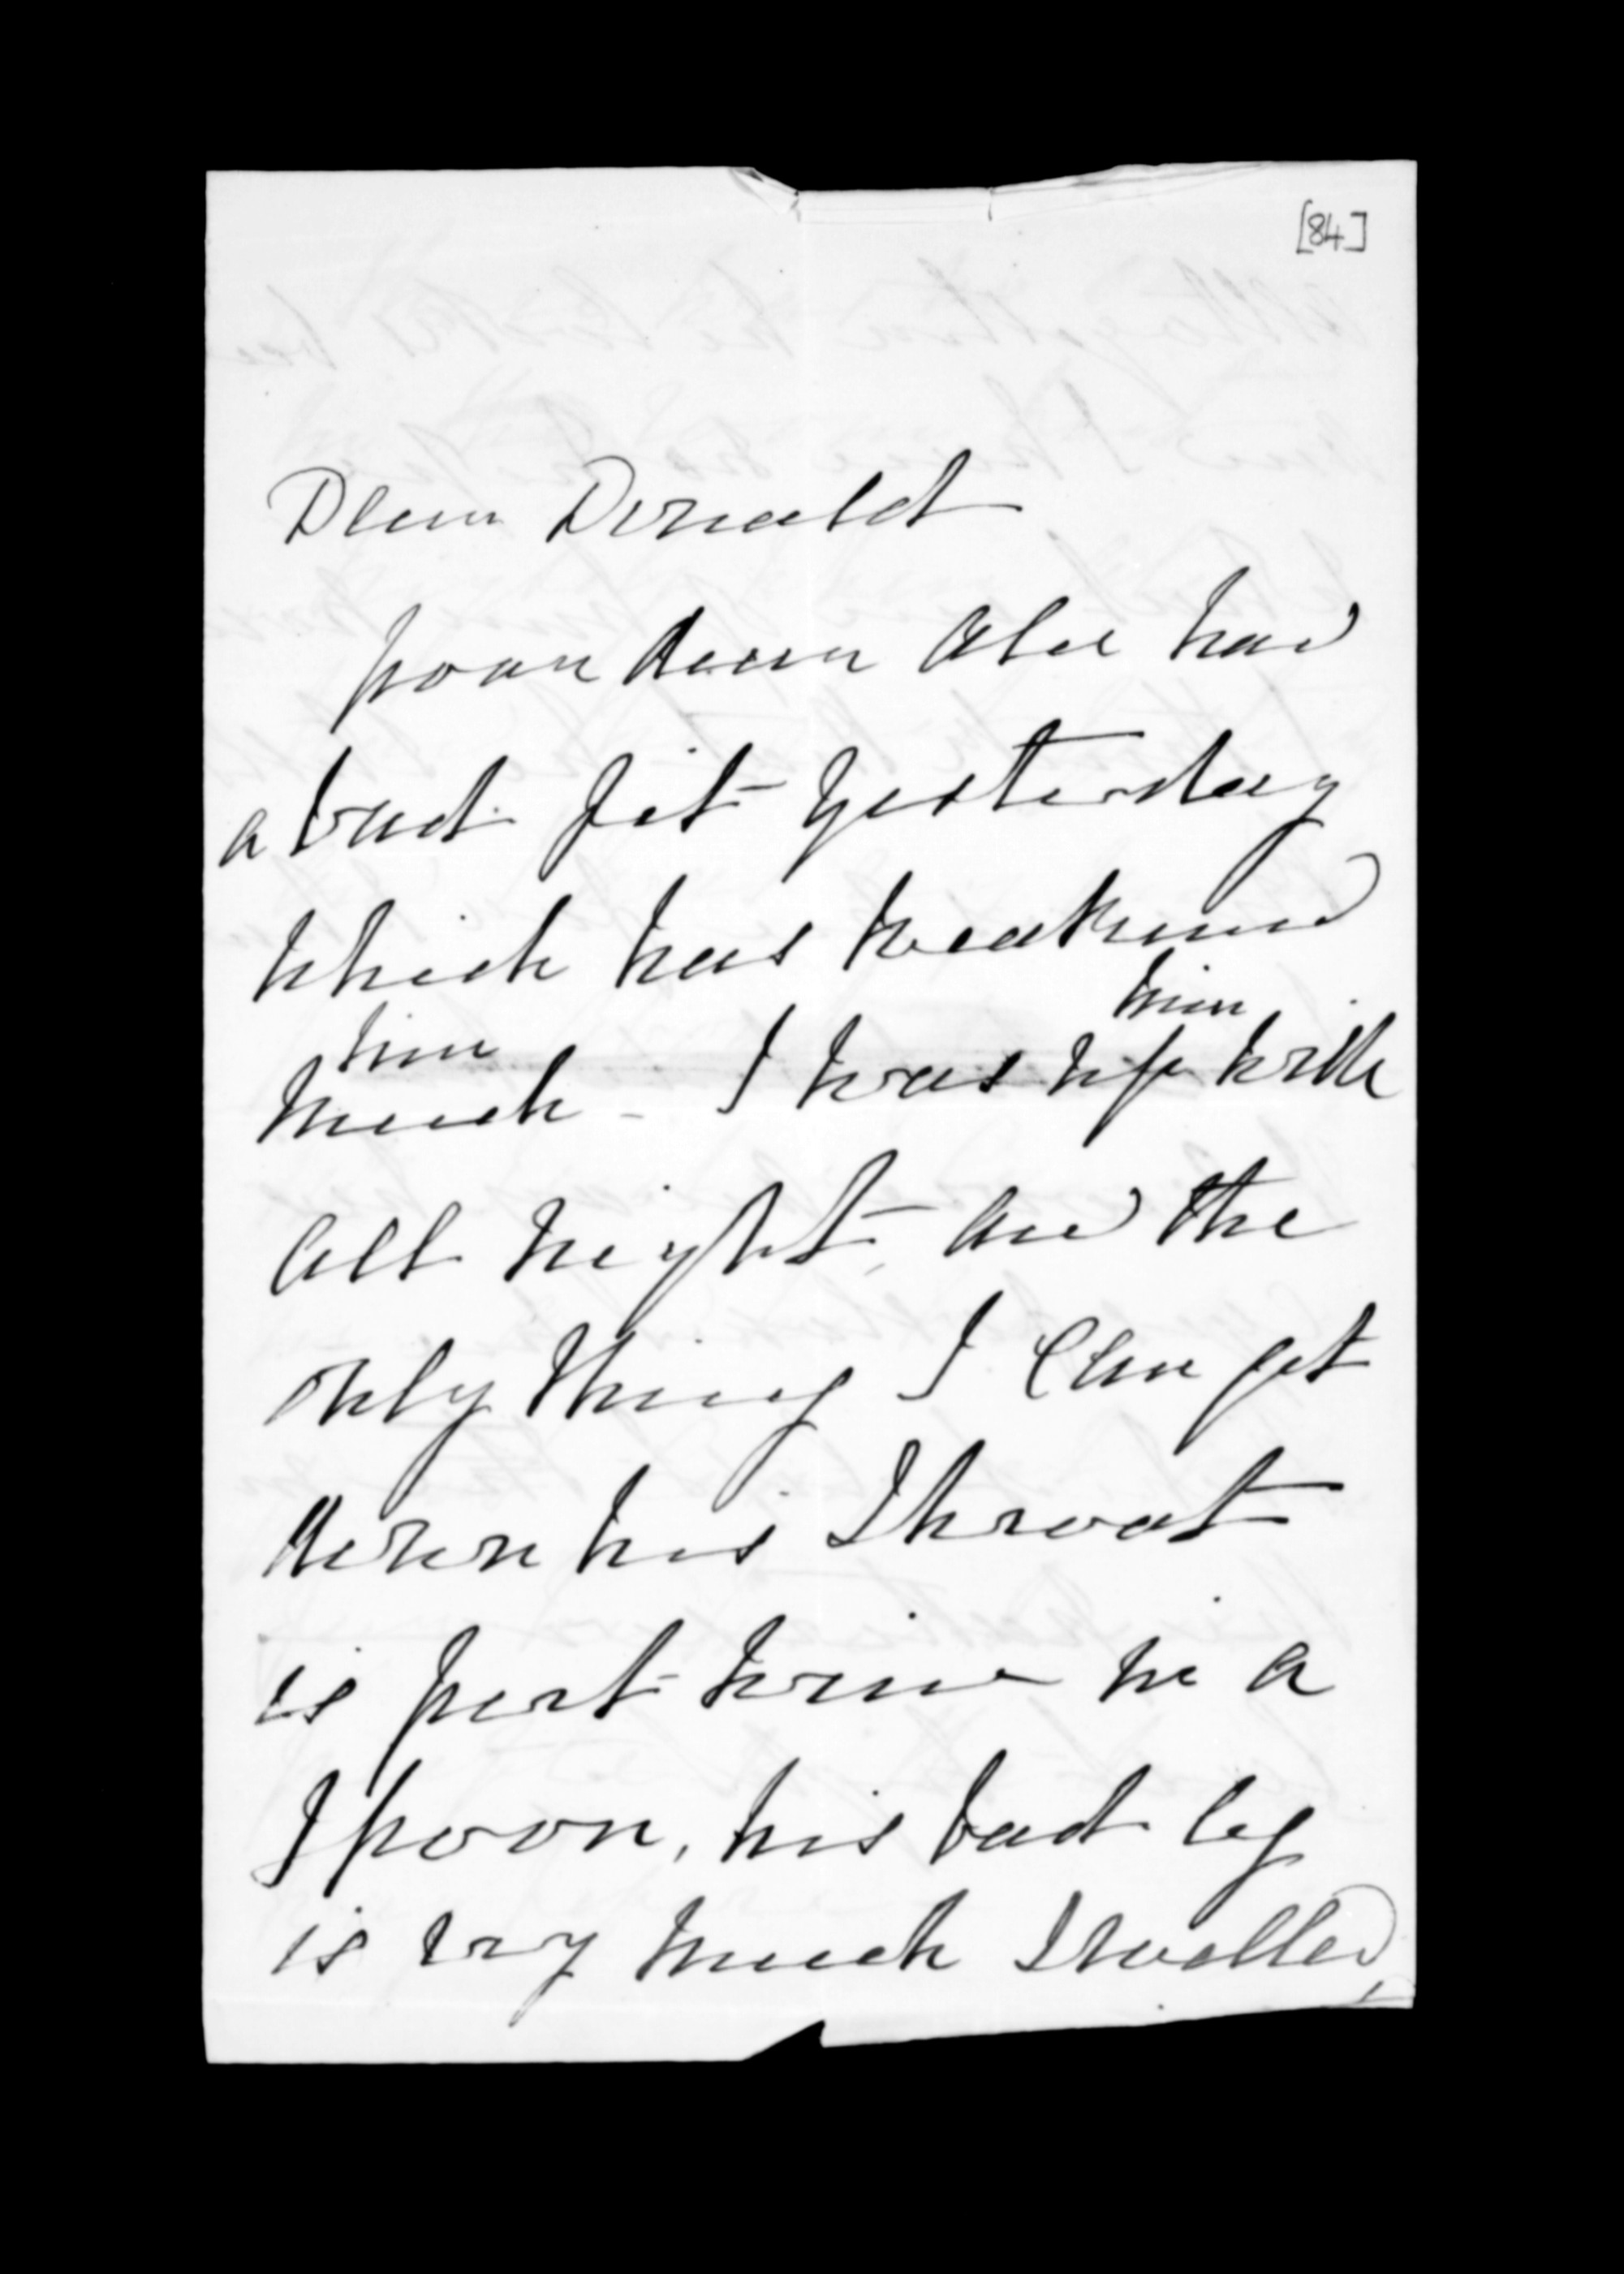 [84]
Dear Donald
poor dear Alec had
a bad fit yesterday
which has weakened
him
him
much - I was up with
all night, and the
only thing I can get
down his Throat
is port wine in a
Spoon, his bad leg
is very much Swelled